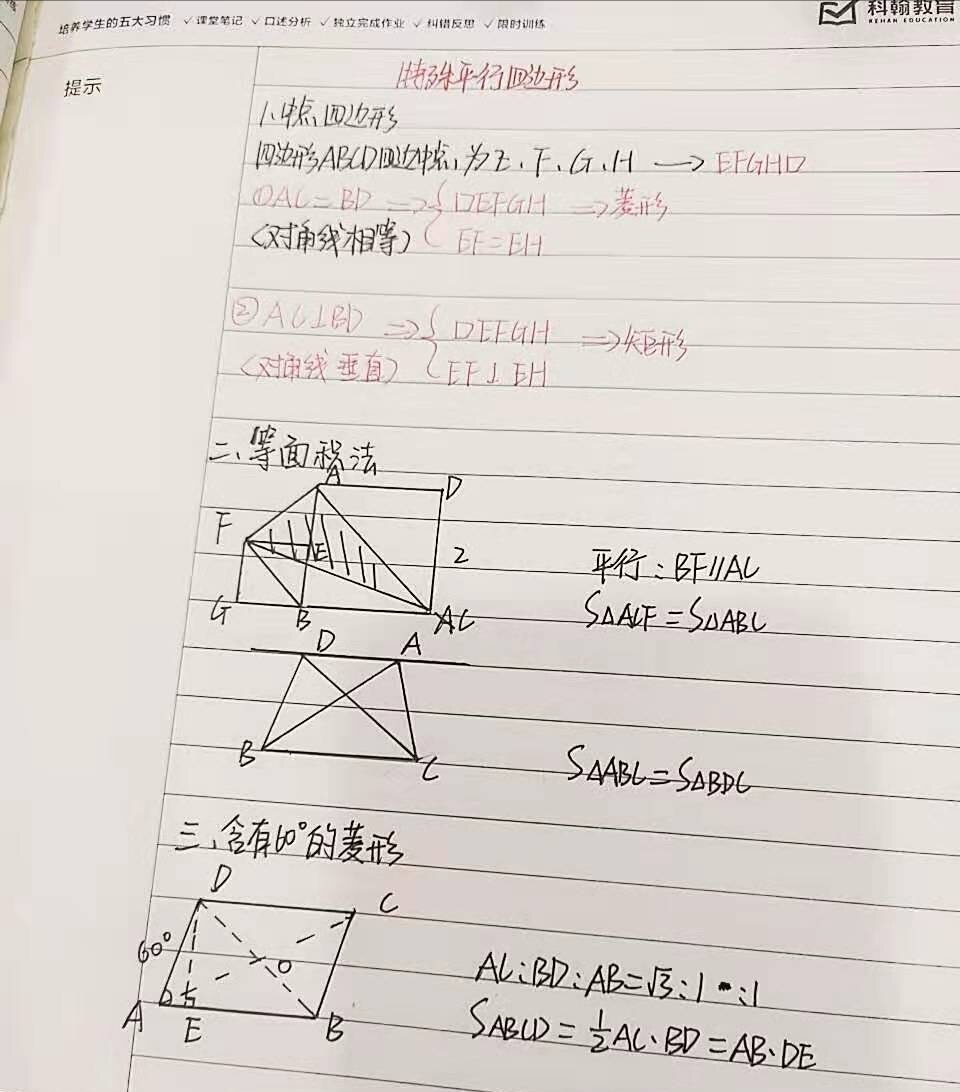 培养学生的五大习惯 ✓课堂笔记 ✓口述分析 ✓独立完成作业 ✓纠错反思 ✓限时训练
科翰教育
KEHAN EDUCATION
提示
特殊平行四边形
1、中点四边形
四边形ABCD四边中点,为E、F、G、H → EFGH▱
①AC=BD ⇒ { ▱EFGH ⇒菱形
(对角线相等) { EF=EH
②AC⊥BD ⇒ { ▱EFGH ⇒矩形
(对角线垂直) { EF⊥EH
二、等面积法
A D
F E 2
平行:BF∥AC
G B AC
S△ACF=S△ABC
D A
B C
S△ABC=S△BDC
三、含有60°的菱形
D C
60° O
AC:BD:AB=√3:1:1
A E B
SABCD=½AC·BD=AB·DE